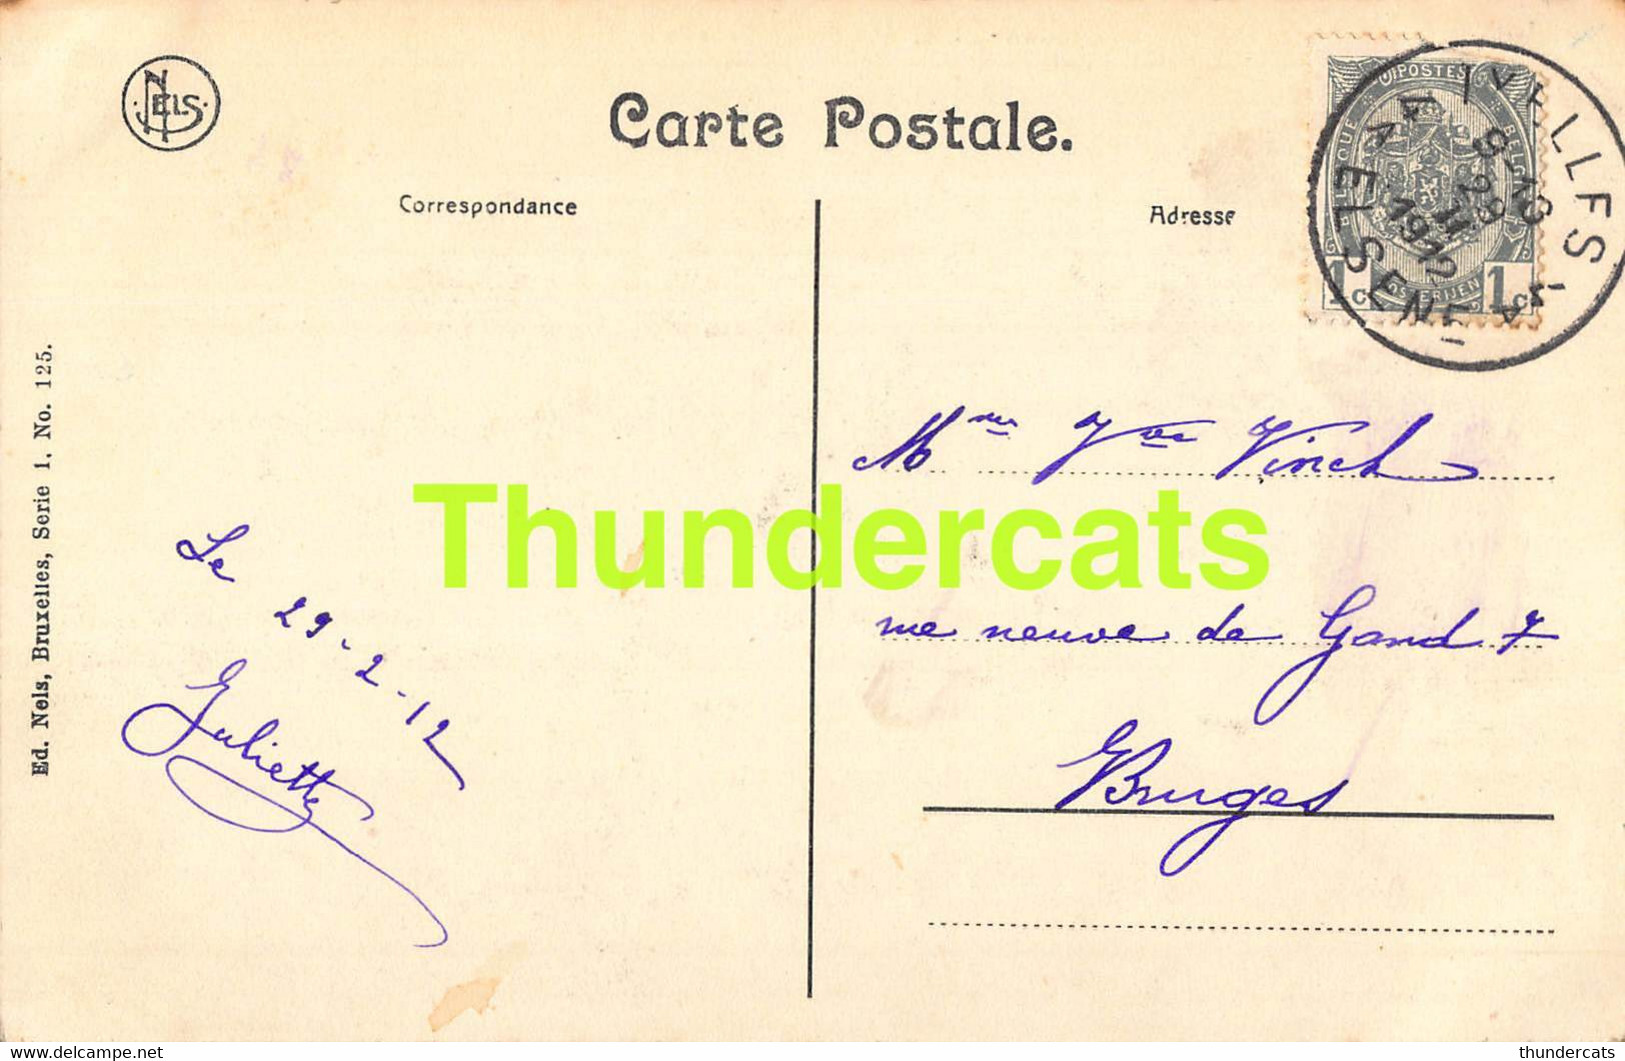 NELS
Carte Postale.
Correspondance
Adresse
POSTES
BELGIQUE
1c 1c
POSTERIJEN
IXELLES
9-10
29 II
1912
ELSENE
4A
Mme Vve Vinck
rue neuve de Gand 7
Bruges
Le 29-2-12
Juliette
Ed. Nels, Bruxelles, Serie 1. No. 125.
Thundercats
thundercats
delcampe.net